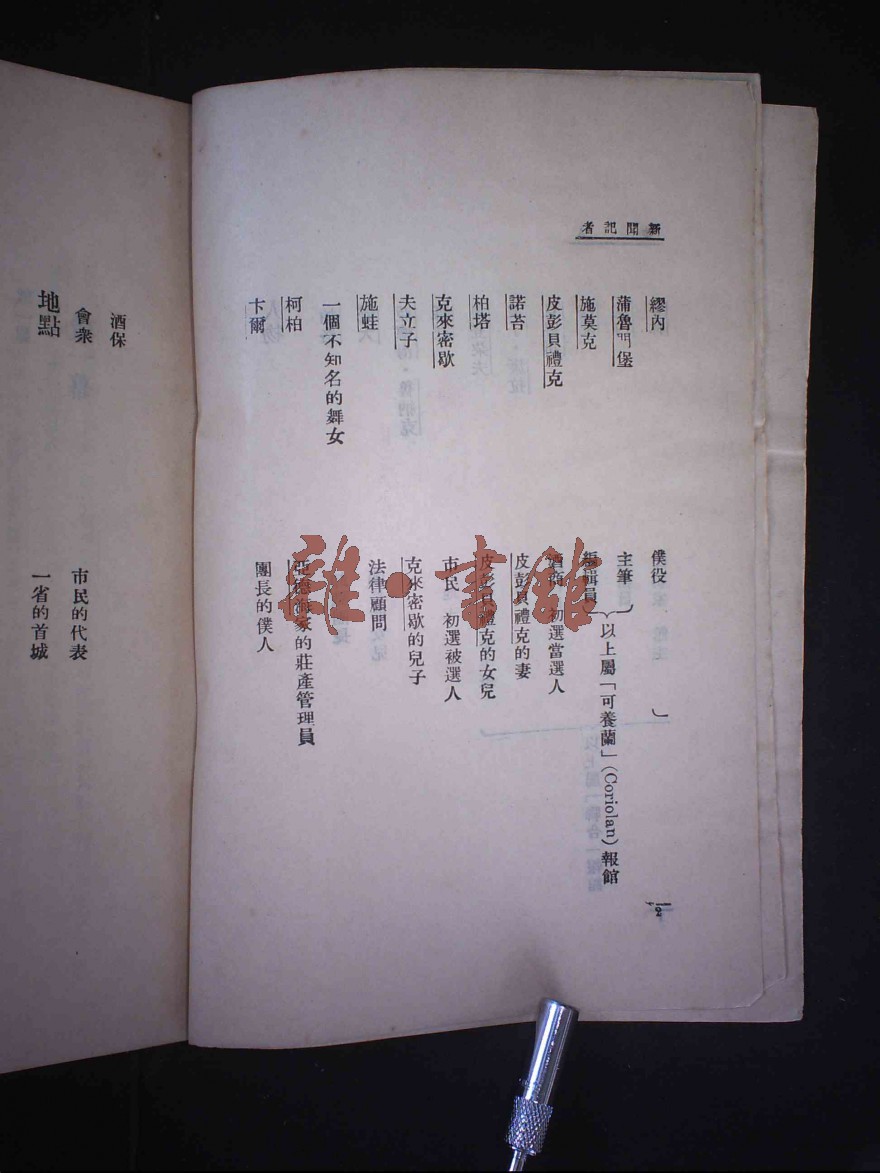 新聞記者
繆內　僕役
蒲魯門堡　主筆
施莫克　編輯員
以上屬「可養蘭」(Coriolan)報館
皮彭貝禮克　酒商　初選當選人
諾苔　皮彭貝禮克的妻
柏塔　皮彭貝禮克的女兒
克來密歇　市民　初選被選人
夫立子　克來密歇的兒子
施蛙　法律顧問
一個不知名的舞女
柯柏　亞德海家的莊產管理員
卞爾　團長的僕人
酒保
會衆　市民的代表
地點　一省的首城
雜·書館